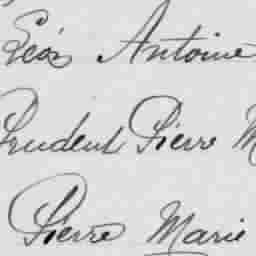 Léon Antoine
Prudent Pierre M
Pierre Marie